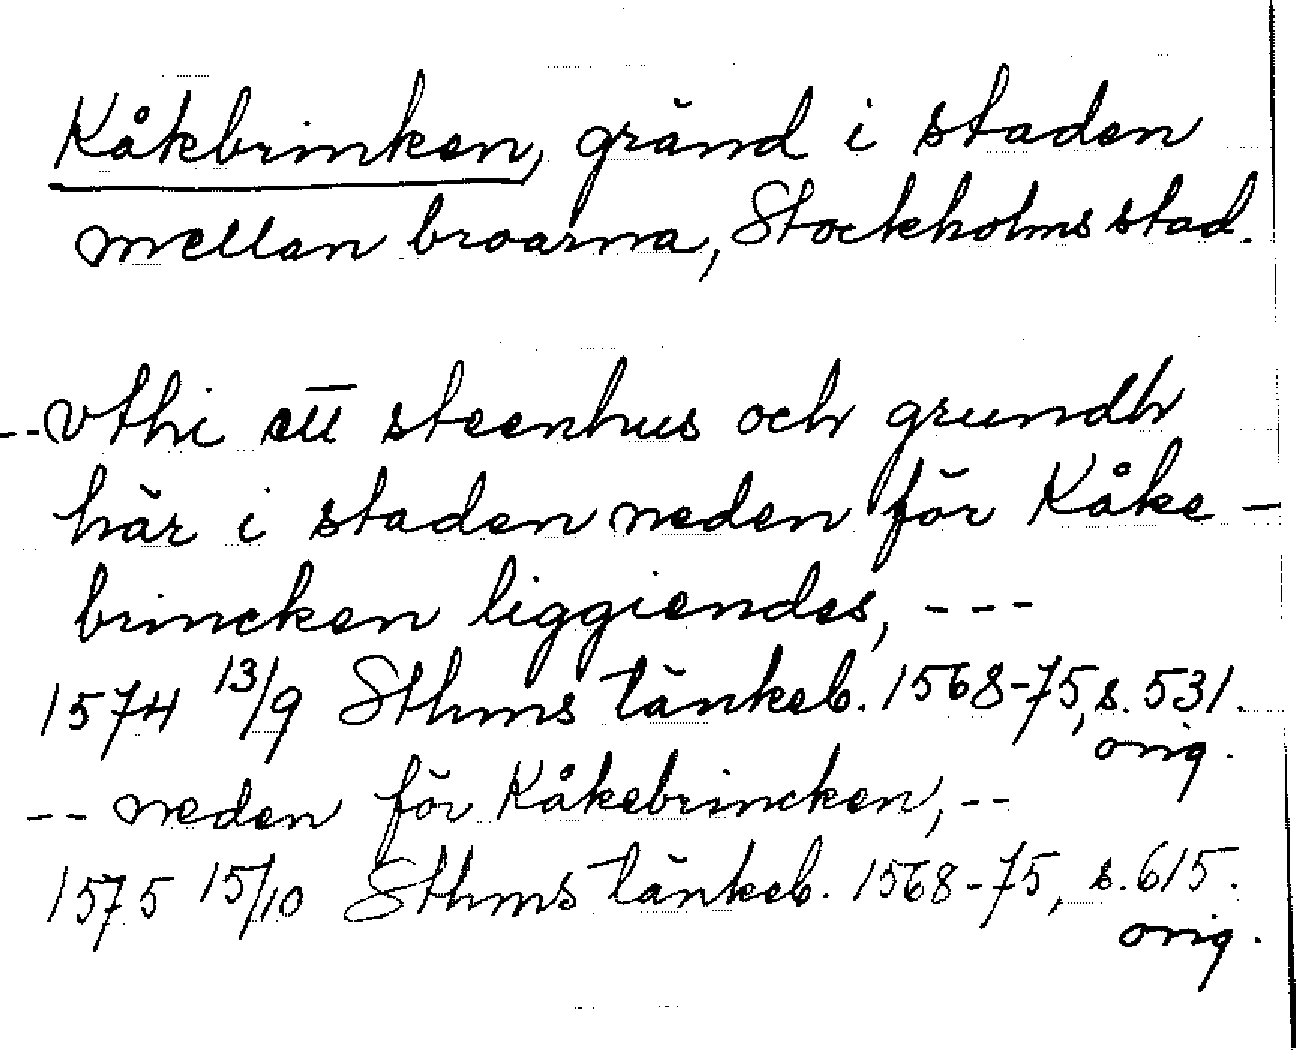 Kåkbrinken, gränd i staden
mellan broarna, Stockholms stad.
--vthi ett steenhus och grundh
här i staden neden för Kåke-
brincken liggiendes, ---
1574 13/9 Sthms tänkeb. 1568-75, s. 531.
orig.
-- neden för Kåkebrincken, --
1575 15/10 Sthms tänkeb. 1568-75, s. 615.
orig.